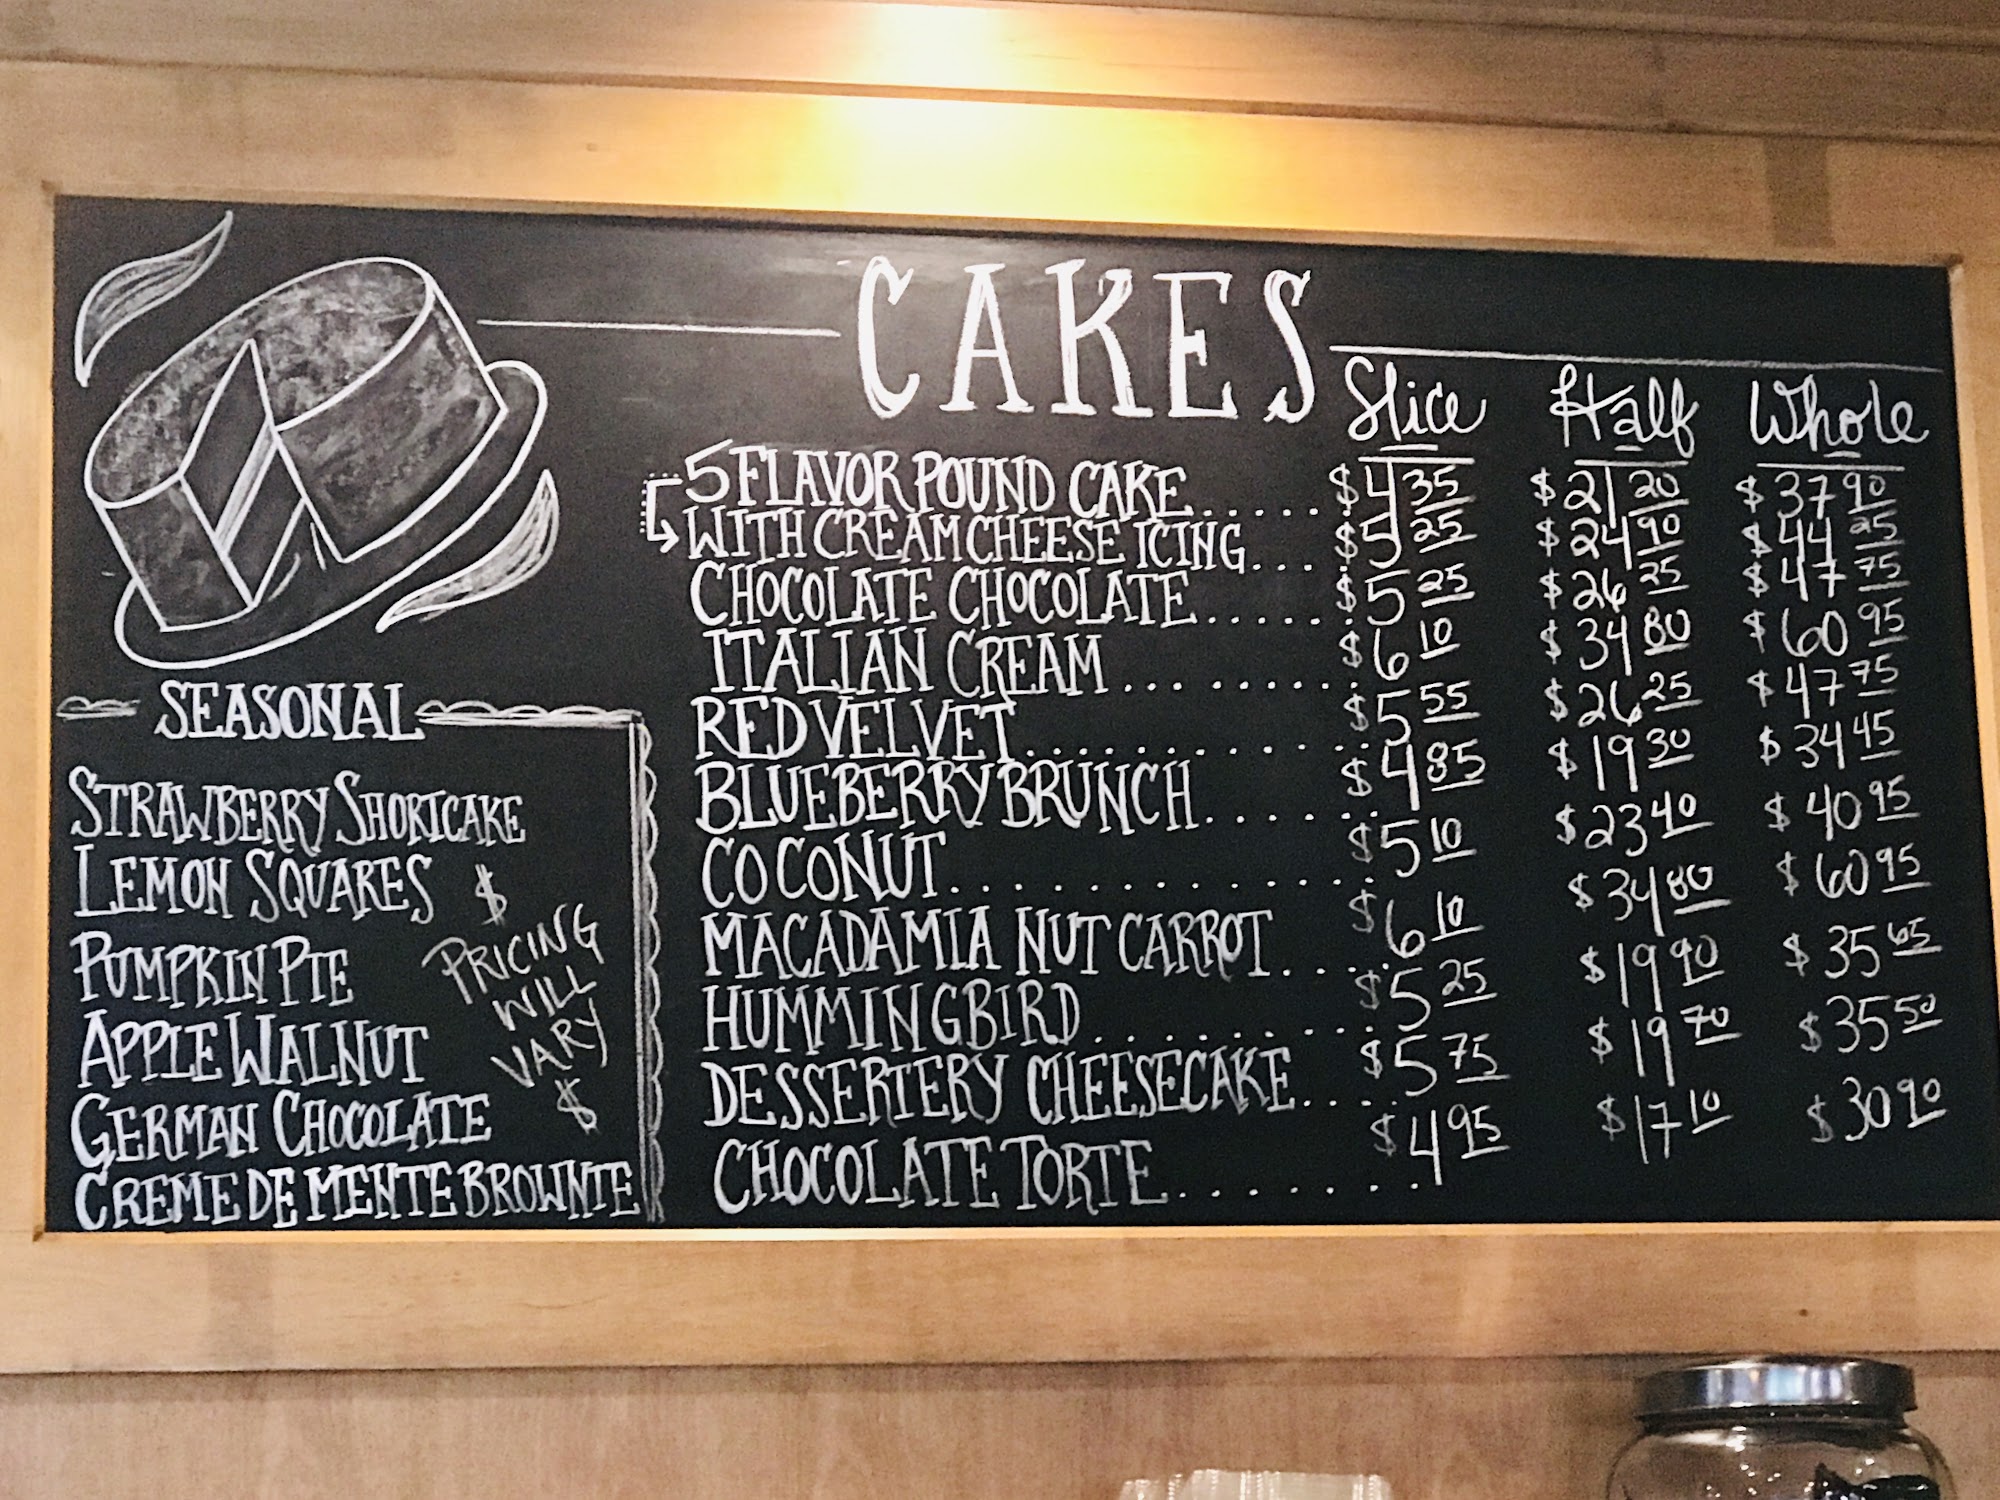 CAKES
Slice Half Whole
5 FLAVOR POUND CAKE..... $4 35 $21 20 $37 90
WITH CREAM CHEESE ICING... $5 25 $24 90 $44 25
CHOCOLATE CHOCOLATE...... $5 25 $26 25 $47 75
ITALIAN CREAM......... $6 10 $34 80 $60 95
RED VELVET............. $5 55 $26 25 $47 75
BLUEBERRY BRUNCH...... $4 85 $19 30 $34 45
COCONUT............. $5 10 $23 40 $40 95
MACADAMIA NUT CARROT.... $6 10 $34 80 $60 95
HUMMINGBIRD......... $5 25 $19 90 $35 65
DESSERTERY CHEESECAKE.... $5 75 $19 70 $35 50
CHOCOLATE TORTE........ $4 95 $17 10 $30 90
SEASONAL
STRAWBERRY SHORTCAKE
LEMON SQUARES
PUMPKIN PIE
APPLE WALNUT
GERMAN CHOCOLATE
CREME DE MENTE BROWNIE
$
PRICING
WILL
VARY
$